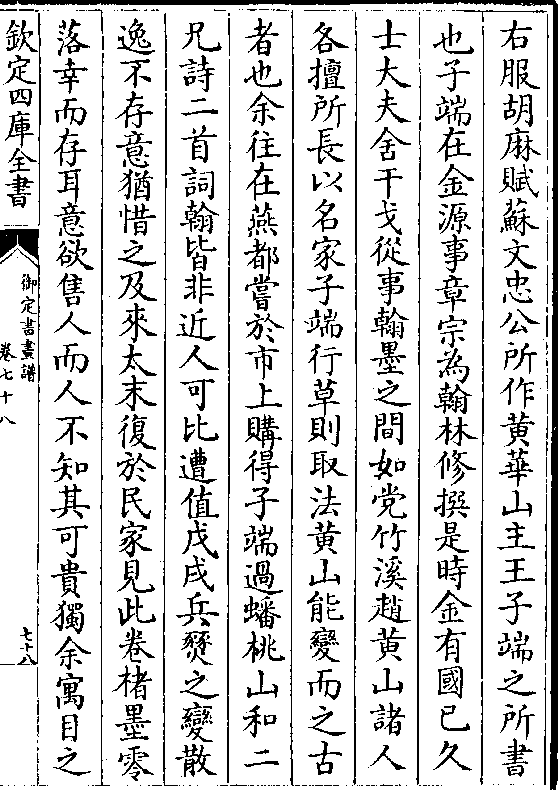 右服胡麻賦蘇文忠公所作黄華山主王子端之所書
也子端在金源事章宗為翰林修撰是時金有國已久
士大夫舍干戈從事翰墨之間如党竹溪趙黄山諸人
各擅所長以名家子端行草則取法黄山能變而之古
者也余往在燕都嘗於市上購得子端過蟠桃山和二
兄詩二首詞翰皆非近人可比遭值戊戌兵燹之變散
逸不存意猶惜之及來太末復於民家見此卷楮墨零
落幸而存耳意欲售人而人不知其可貴獨余寓目之
欽定四庫全書
御定書畫譜
卷七十八
七十八